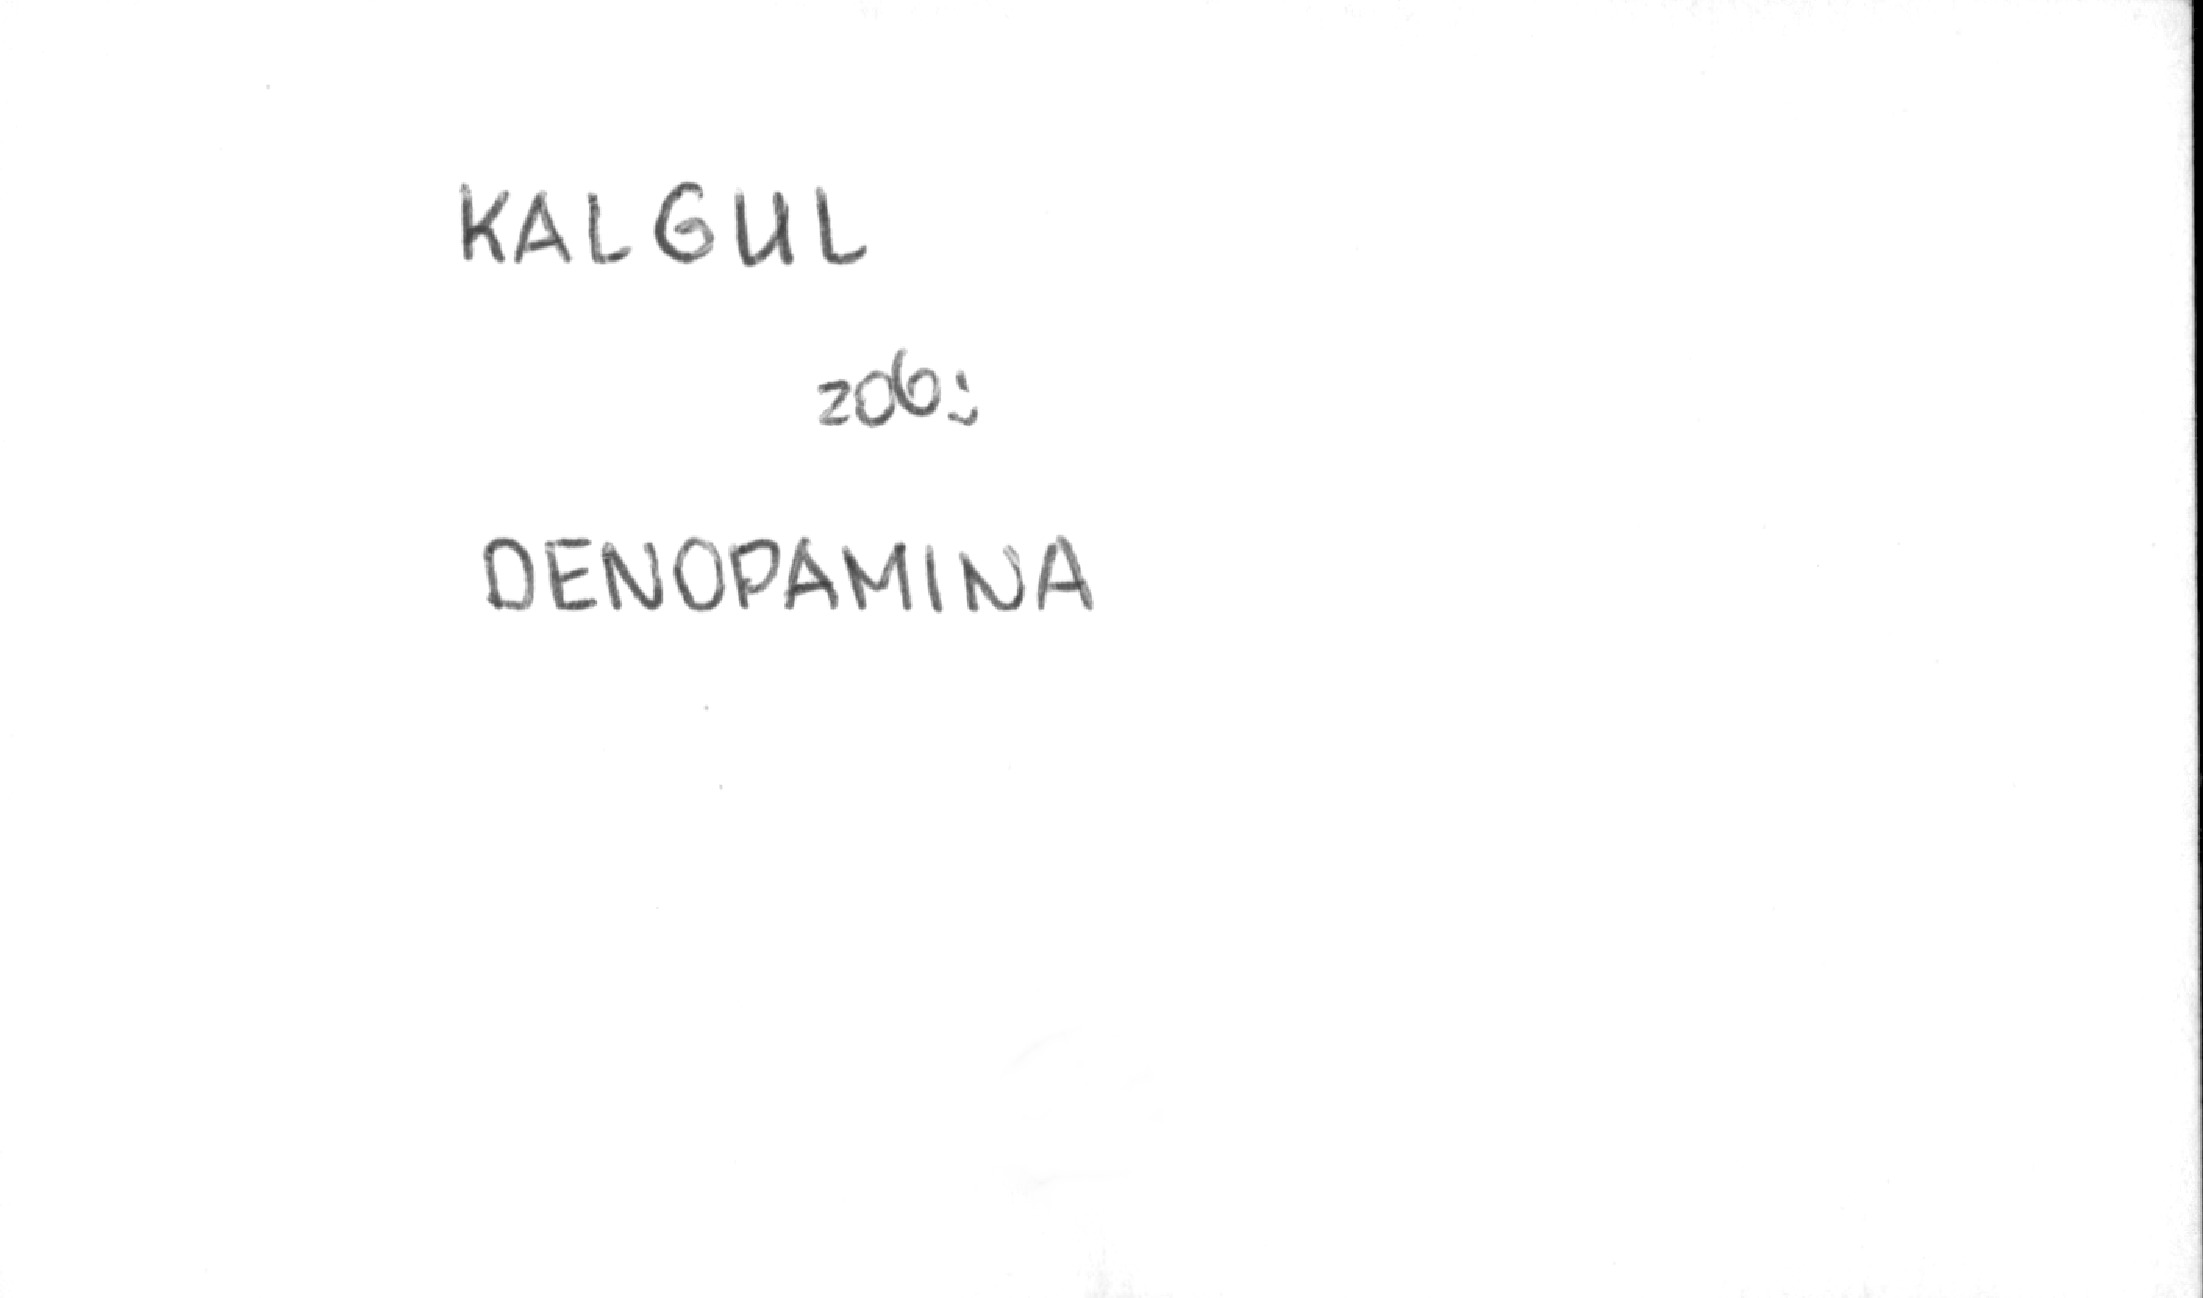 KALGUL
zob:
DENOPAMINA